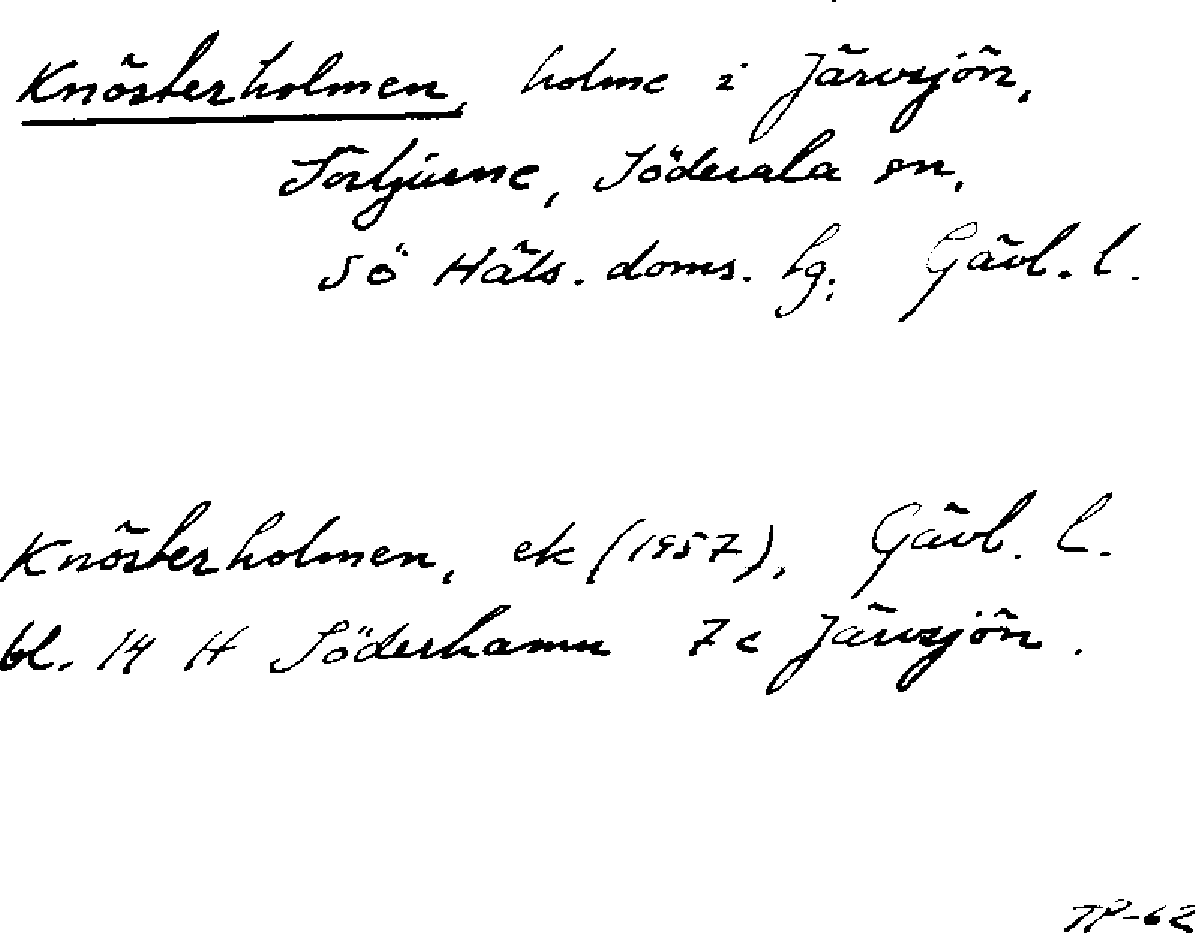 Knösterholmen, holme i Järvsjön,
Söderala sn,
Sö Häls. doms. lg; Gävl. l.
Knösterholmen, ek (1957), Gävl. l.
bl. 14 H Söderhamn 7c Järvsjön.
TP-62